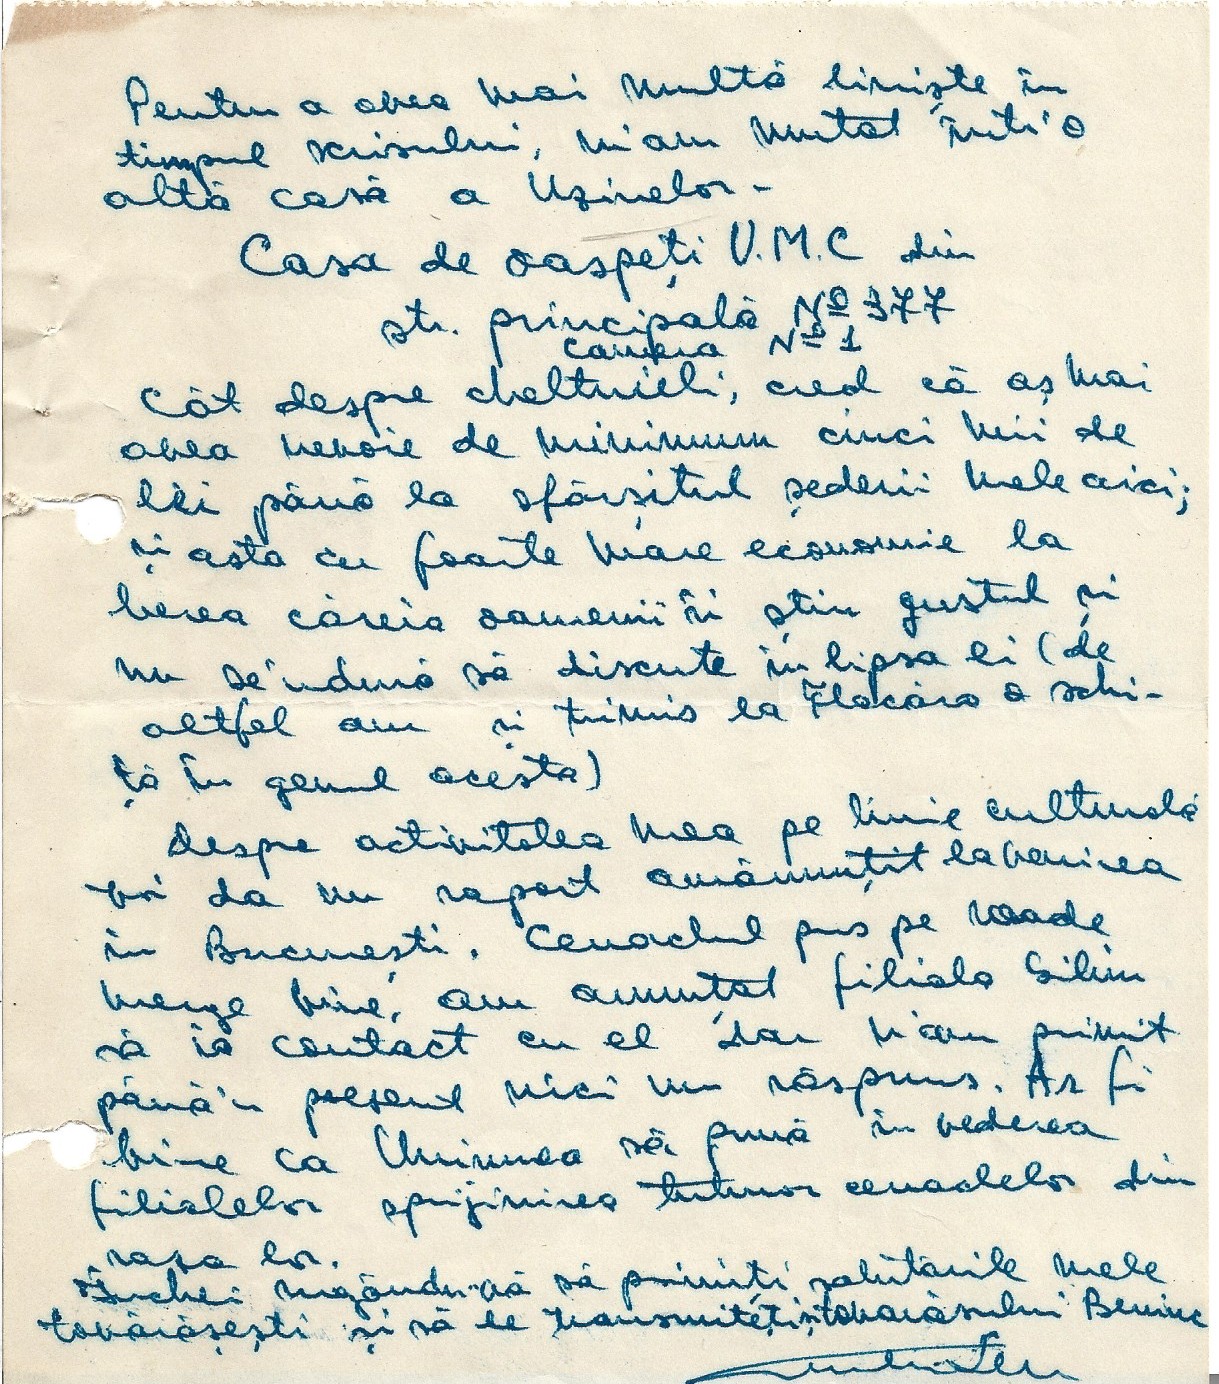 Pentru a avea mai multă liniște în
timpul scrisului, m'am mutat într'o
altă casă a Uzinelor -
Casa de oaspeți U.M.C din
str. principală No 377
camera No 1
Cât despre cheltuieli, cred că aș mai
avea nevoie de minimum cinci mii de
lei până la sfârșitul șederii mele aici;
și asta cu foarte mare economie la
berea căreia oamenii îi știu gustul și
nu se'ndură să discute în lipsa ei (de
altfel am și trimis la Flacăra o schi-
ță în genul acesta)
Despre activitatea mea pe linie culturală
voi da un raport amănunțit la venirea
în București. Cenaclul pus pe roade
merge bine, am anunțat filiala
să ia contact cu el dar n'am primit
până'n prezent nici un răspuns. Ar fi
bine ca Uniunea să pună în vederea
filialelor sprijinirea tuturor cenaclelor din
raza lor.
Închei rugându-vă să primiți salutările mele
tovărășești și să le transmiteți și tovarășului Beniuc